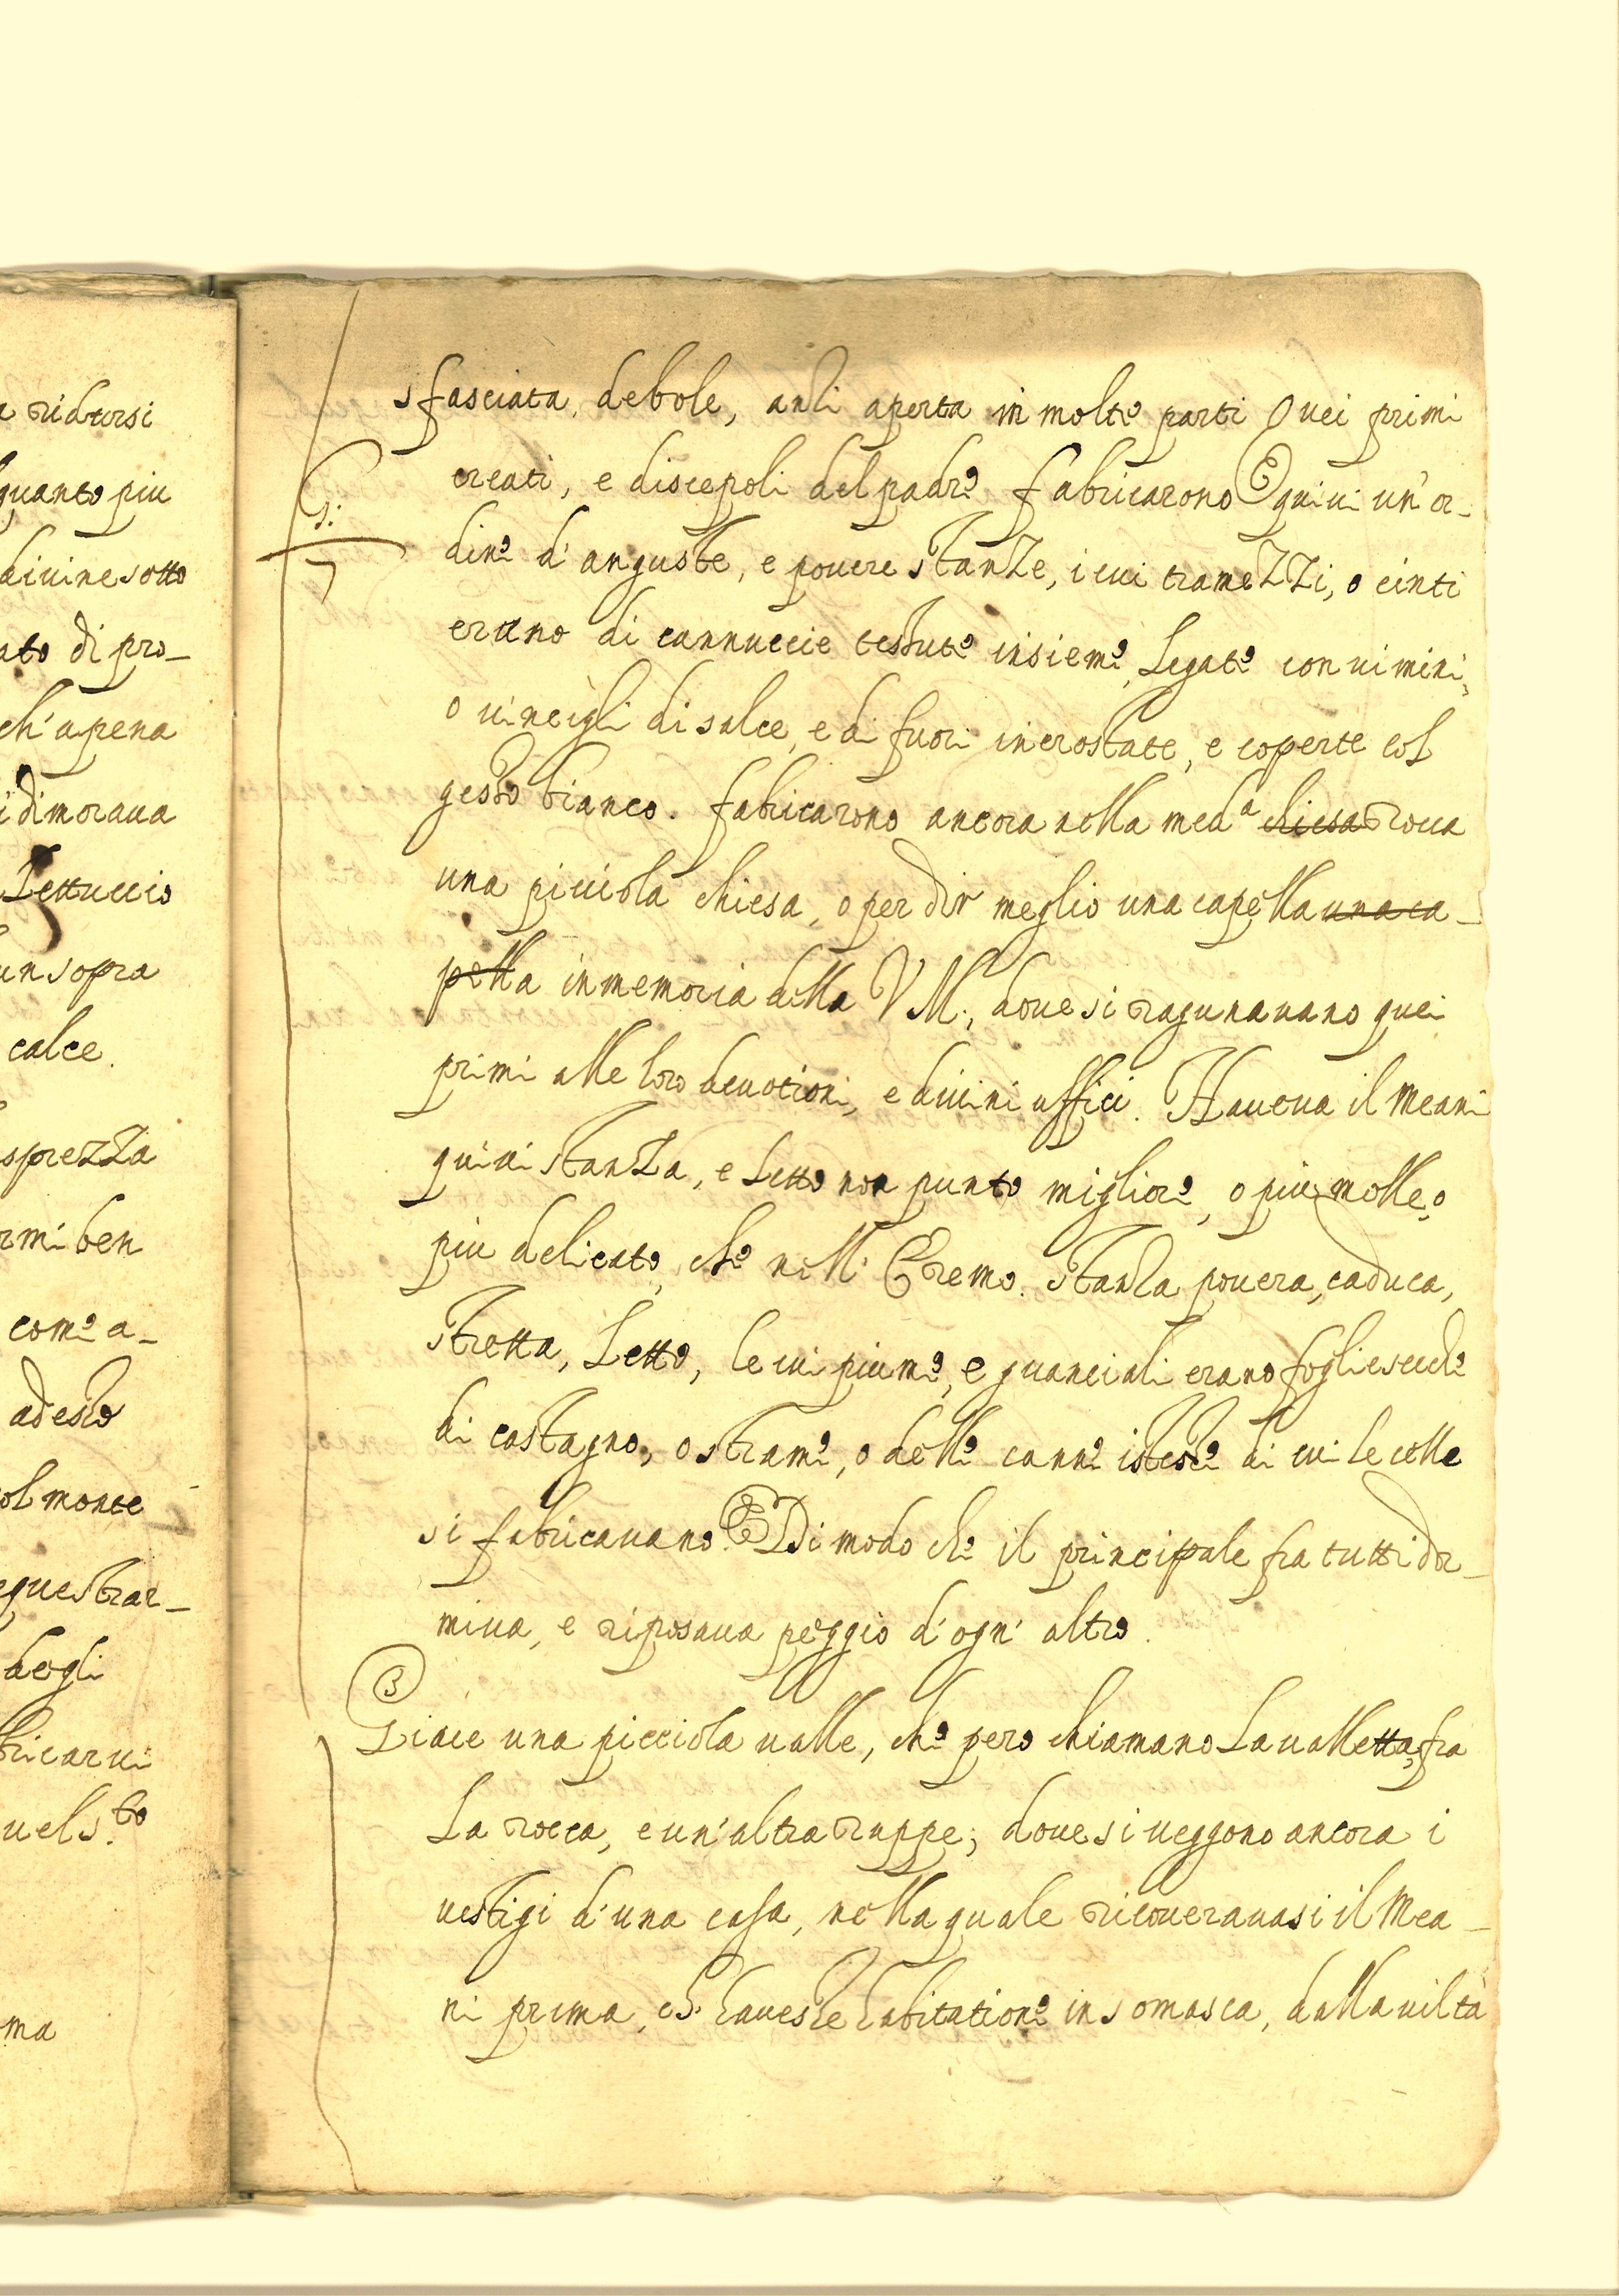 a ridursi
quanto piu
diuine sotto
ato di pro-
ch' apena
i dimoraua
Lettuccio
un sopra
calce.
sprezza
rmi ben
come a-
adesso
ol monte
equestrar-
degli
bricarui
uel s.to
ma
sfasciata, debole, anzi aperta in molte parti Quei primi
creati, e discepoli del padre fabricarono quiui un' or-
dine d' anguste, e pouere stanze, i cui tramezzi, o cinti
erano di cannuccie tessute insieme, Legate con uimini,
o uincigli di salce, e di fuori incrostate, e coperte col
gesso bianco. fabricarono ancora nella med.a chiesa rocca
una picciola chiesa, o per dir meglio una capella una ca-
pella in memoria della V M., doue si ragunauano quei
primi alle loro deuotioni, e diuini uffici. Haueua il Meani
quiui stanza, e Letto non punto migliore, o piu molle, o
piu delicato, che nell' Eremo. stanza pouera, caduca,
stretta, Letto, le cui piume, e guanciali erano foglie secche
di castagno, o strame, o delle canne istesse di cui le celle
si fabricauano. Di modo che il principale fra tutti dor-
miua, e riposaua peggio d' ogn' altro.
3
Giace una picciola ualle, che pero chiamano La ualletta, fra
La rocca, e un' altra ruppe; doue si ueggono ancora i
uestigi d' una casa, nella quale ricouerauasi il Mea-
ni prima, ch' hauesse habitatione in somasca, dalla uiltà